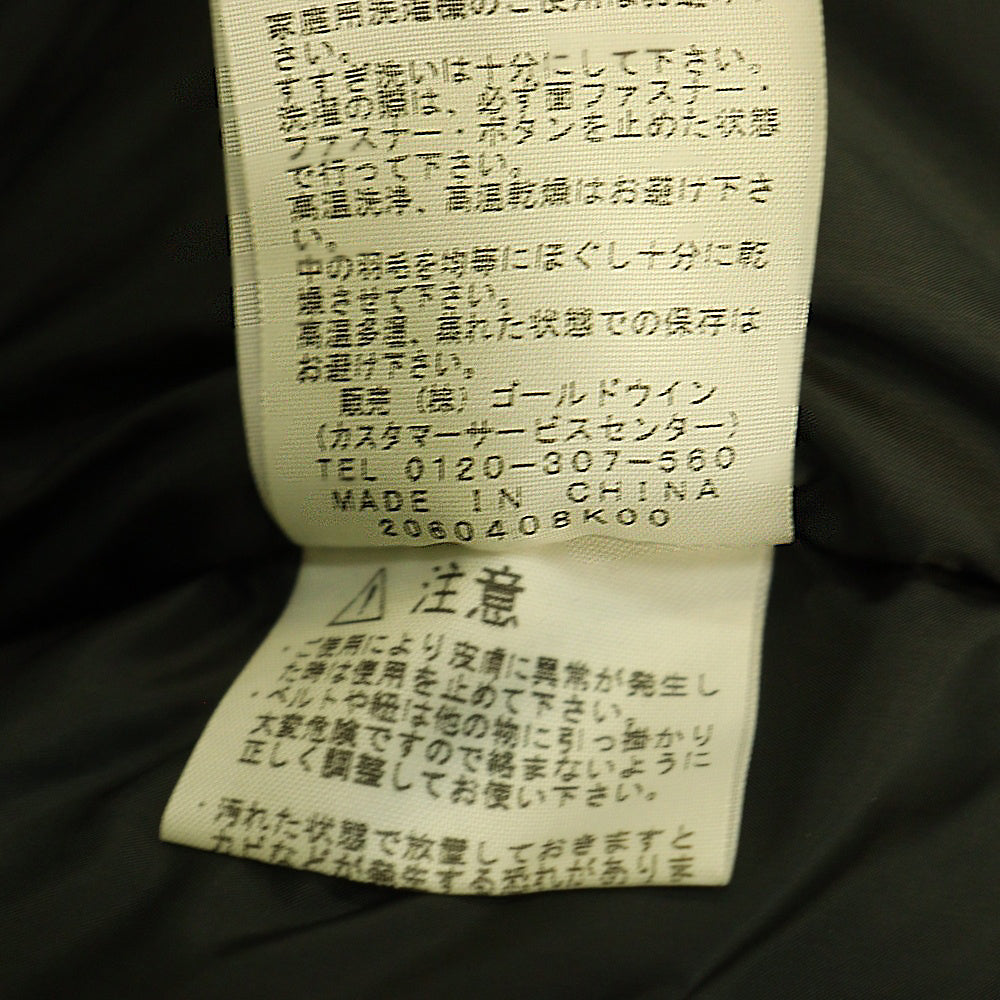 家庭用洗濯機のご使用はお避け下
さい。
すすぎ洗いは十分にして下さい。
洗濯の際は、必ず面ファスナー・
ファスナー・ボタンを止めた状態
で行って下さい。
高温洗浄、高温乾燥はお避け下さ
い。
中の羽毛を均等にほぐし十分に乾
燥させて下さい。
高温多湿、蒸れた状態での保存は
お避け下さい。
販売 (株) ゴールドウイン
(カスタマーサービスセンター)
TEL 0120-307-560
MADE IN CHINA
2060408K00
⚠ 注意
・ご使用により皮膚に異常が発生し
た時は使用を止めて下さい。
・ベルトや紐は他の物に引っ掛かり
大変危険ですので絡まないように
正しく調整してお使い下さい。
・汚れた状態で放置しておきますと
カビなどが発生する恐れがありま